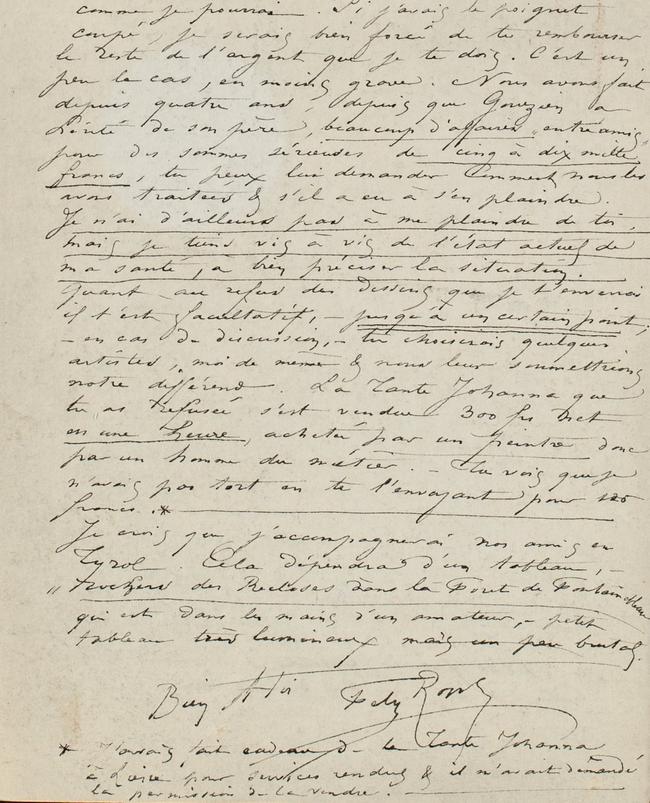 comme je pourrai. Si j'avais le poignet
coupé, je serais bien forcé de te rembourser
le reste de l'argent que je te dois. C'est un
peu le cas, en moins grave. Nous avons fait
depuis quatre ans, depuis que Gouzien a
hérité de son père, beaucoup d'affaires „entre amis"
pour des sommes sérieuses de cinq à dix mille
francs, tu peux lui demander comment nous les
avons traitées & s'il a eu à s'en plaindre.
Je n'ai d'ailleurs pas à me plaindre de toi,
mais je tiens vis à vis de l'état actuel de
ma santé, à bien préciser la situation.
Quant au refus des dessins que je t'enverrai
il t'est facultatif, – jusqu'à un certain point;
– en cas de discussion, – tu choisirais quelques
artistes, moi de même & nous leur soumettrions
notre différend. La Tante Johanna que
tu as refusée s'est vendue 300 frs net
en une heure, acheté par un peintre donc
par un homme du métier. – Tu vois que je
n'avais pas tort en te l'envoyant pour
francs. *
Je crois que j'accompagnerai nos amis en
Tyrol. Cela dépendra d'un tableau, –
„Rochers des Recloses dans la Foret de Fontainebleau
qui est dans les mains d'un amateur, – petit
tableau très lumineux mais un peu brutal.
Bien à toi Fely Rops
* J'avais fait cadeau de la Tante Johanna
à Liesse pour services rendus & il m'avait demandé
la permission de la vendre.